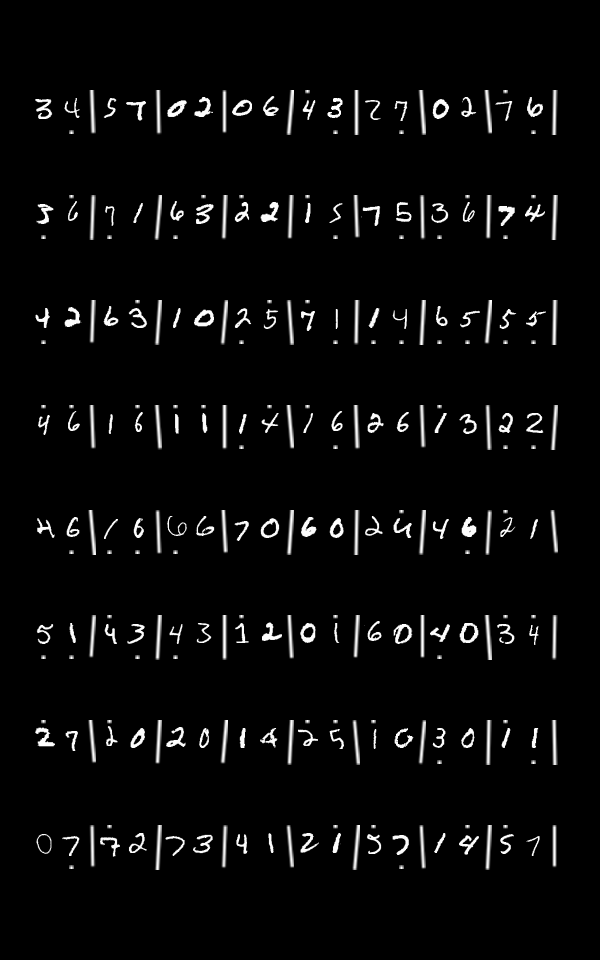 3 4̣ | 5 7 | 0 2 | 0 6 | 4̇ 3̣ | 2 7̣ | 0 2 | 7̇ 6̣ |
3̣ 6̇ | 7̣ 1 | 6̣ 3̇ | 2̇ 2 | 1̇ 5̣ | 7 5̣ | 3̣ 6̇ | 7̣ 4̇ |
4̣ 2 | 6 3̇ | 1 0 | 2̣ 5̇ | 7̇ 1̣ | 1̣ 4̣ | 6̣ 5̣ | 5̣ 5̣ |
4̇ 6̇ | 1 6̇ | 1̇ 1̇ | 1̣ 4̇ | 1̇ 6̣ | 2 6 | 1̇ 3 | 2̣ 2̣ |
4 6̣ | 1̣ 6̣ | 6̣ 6 | 7 0 | 6 0 | 2 4̇ | 4 6̣ | 2̇ 1 |
5̣ 1̣ | 4̇ 3̣ | 4̣ 3 | 1̇ 2 | 0 1̇ | 6 0 | 4̣ 0 | 3̇ 4̇ |
2̇ 7 | 2̇ 0 | 2 0 | 1 4 | 2̇ 5̇ | 1̇ 0 | 3̣ 0 | 1̇ 1̣ |
0 7̣ | 7̇ 2 | 7 3 | 4 1 | 2 1̇ | 5̇ 7̣ | 1 4̇ | 5̇ 7 |